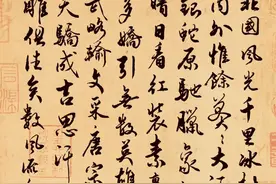 北國風光千里冰
內外惟餘莽莽大
銀蛇原馳蠟象
晴日看紅裝素
多嬌引無數英雄
武略輸文采唐宗
天驕成吉思汗
雕俱往矣數風流